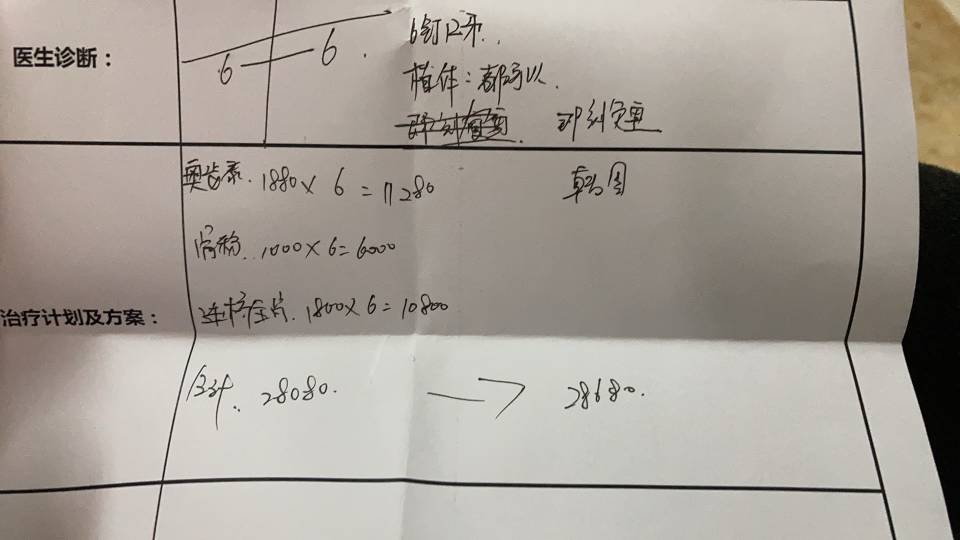 医生诊断：
6 — 6
6钉12牙
植体：都可以
即刻负重
奥齿泰 1880×6=11280 韩国
1000×6=6000
治疗计划及方案：
1800×6=10800
合计 28080. → 28680.